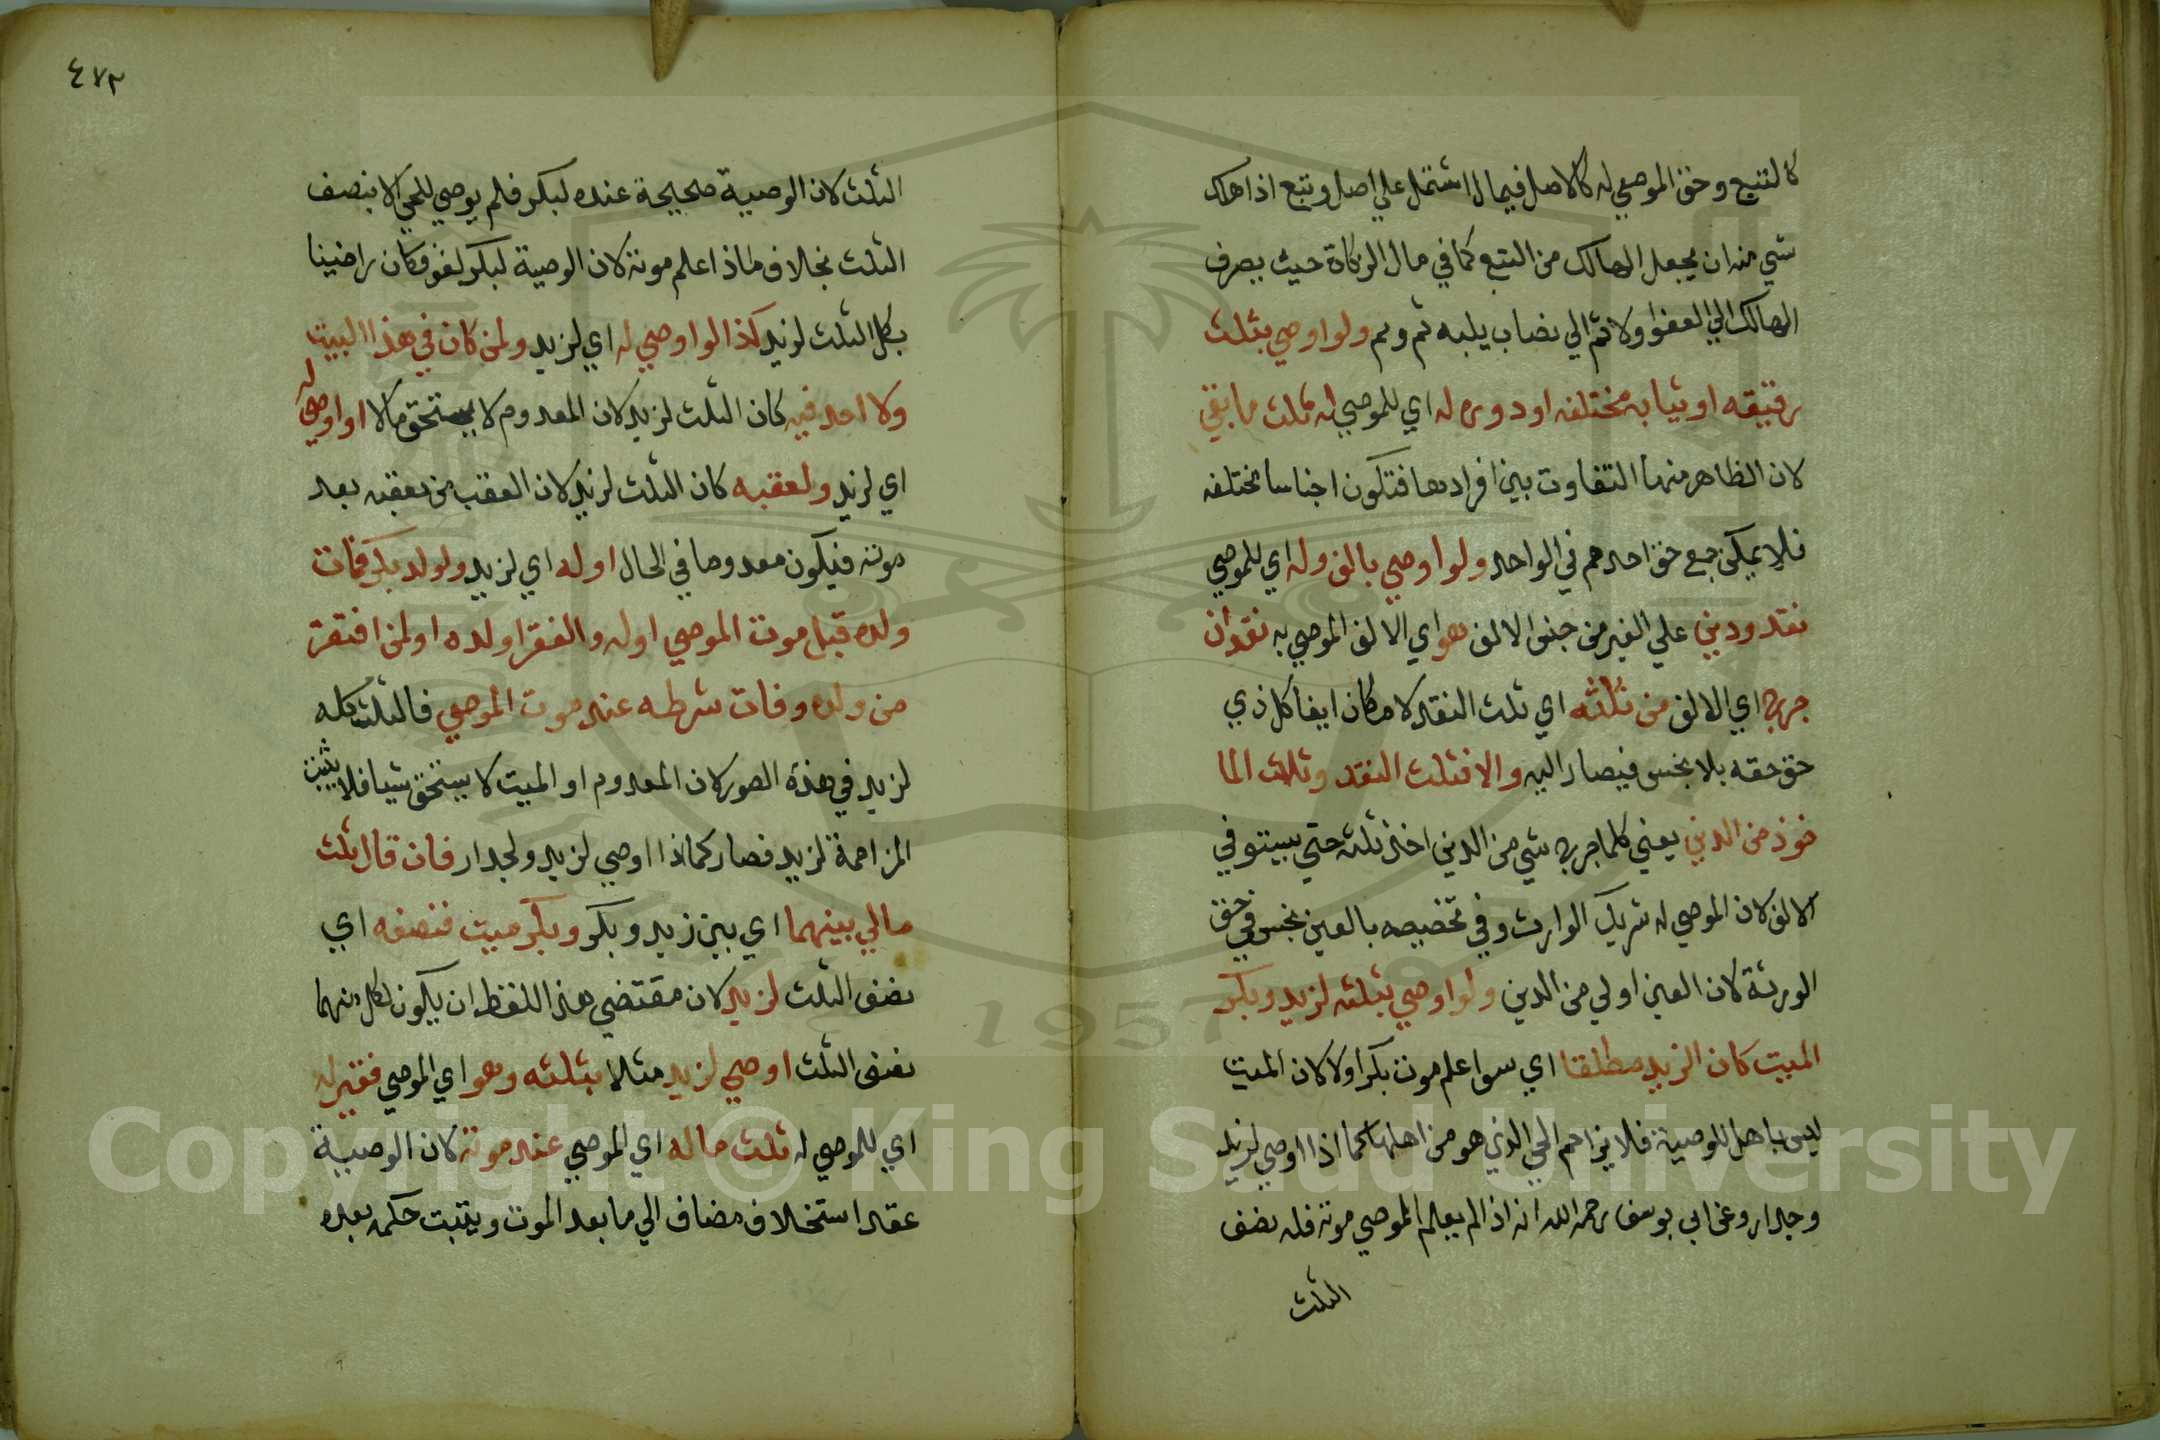 كالتبع وحق الموصي له كالاصل فيما اشتمل علي اصل وتبع اذا هلك
شي منه ان يجعل الهالك من التبع كما في مال الزكاة حيث يصرف
الهالك الي العفوا ولا ثم الي نصاب يليه ثم وثم ولو اوصي بثلث
رقيقه او ثيابه مختلفه او دوره له اي للموصي له ثلث ما بقي
لان الظاهر منها التفاوت بين افرادها فتكون اجناسا مختلفه
فلا يمكن جمع حق احدهم في الواحد ولو اوصي بالف وله اي للموصي
نقد ودين علي الغير من جنس الالف هو اي الالف الموصي به نقد ان
خرج اي الالف من ثلثه اي ثلث النقد لامكان ايفا كل ذي
حق حقه بلا بخس فيصار اليه والا فثلث النقد وثلث الما
خوذ من الدين يعني كلما خرج شي من الدين اخذ ثلثه حتي يستوفي
الالف لان الموصي له شريك الوارث وفي تخصيصه بالعين بخس في حق
الورثة لان العين اولي من الدين ولو اوصي بثلثه لزيد وبكر
الميت كان الزيد مطلقا اي سوا علم موت بكر اولا لان الميت
ليس باهل للوصية فلا يزاحم الحي الذي هو من اهلها كما اذا اوصي لزيد
وجدار وعن ابي يوسف رحمه الله انه اذا لم يعلم الموصي موته فله نصف
الثلث
٤٧٢
الثلث لان الوصية صحيحة عنده لبكر فلم يوصي للحي الا بنصف
الثلث بخلاف ما اذا علم موته لان الوصية لبكر لغو فكان راضيا
بكل الثلث لزيد كذا لو اوصي له اي لزيد ولمن كان في هذا البيت
ولا احد فيه كان الثلث لزيد لان المعدوم لا يستحق مالا او اوصي له
اي لزيد ولعقبه كان الثلث لزيد لان العقب من يعقبه بعد
موته فيكون معدوما في الحال او له اي لزيد ولولد بكر فمات
ولده قبل موت الموصي او له والفقرا ولده او لمن افتقر
من ولده وفات شرطه عند موت الموصي فالثلث كله
لزيد في هذه الصور لان المعدوم او الميت لا يستحق شيا فلا يثبت
المزاحمة لزيد فصار كما اذا اوصي لزيد ولجدار فان قال ثلث
مالي بينهما اي بين زيد وبكر وبكر ميت فنصفه اي
نصف الثلث لزيد لان مقتضي هذا اللفظ ان يكون لكل منهما
نصف الثلث اوصي لزيد مثلا بثلثه وهو اي الموصي فقير له
اي للموصي له ثلث ماله اي الموصي عند موته لان الوصية
عقد استخلاف مضاف الي ما بعد الموت ويثبت حكمه بعده
Copyright © King Saud University
1957